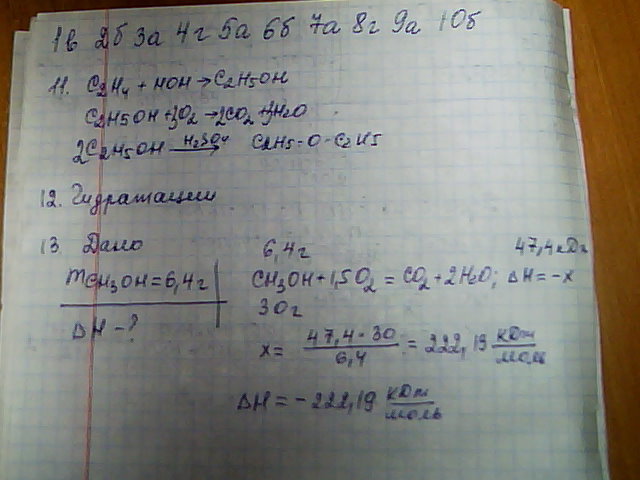 1в 2б 3а 4г 5а 6б 7а 8г 9а 10б
11. C2H4 + HOH → C2H5OH
C2H5OH + 3O2 → 2CO2 + 3H2O
2C2H5OH H2SO4 → C2H5-O-C2H5
12. Гидратации
13 Дано
6,4г 47,4 кДж
mCH3OH = 6,4г CH3OH + 1,5O2 = CO2 + 2H2O; ΔH = -x
30г
ΔH - ?
x = 47,4·30 / 6,4 = 222,19 кДж/моль
ΔH = -222,19 кДж/моль